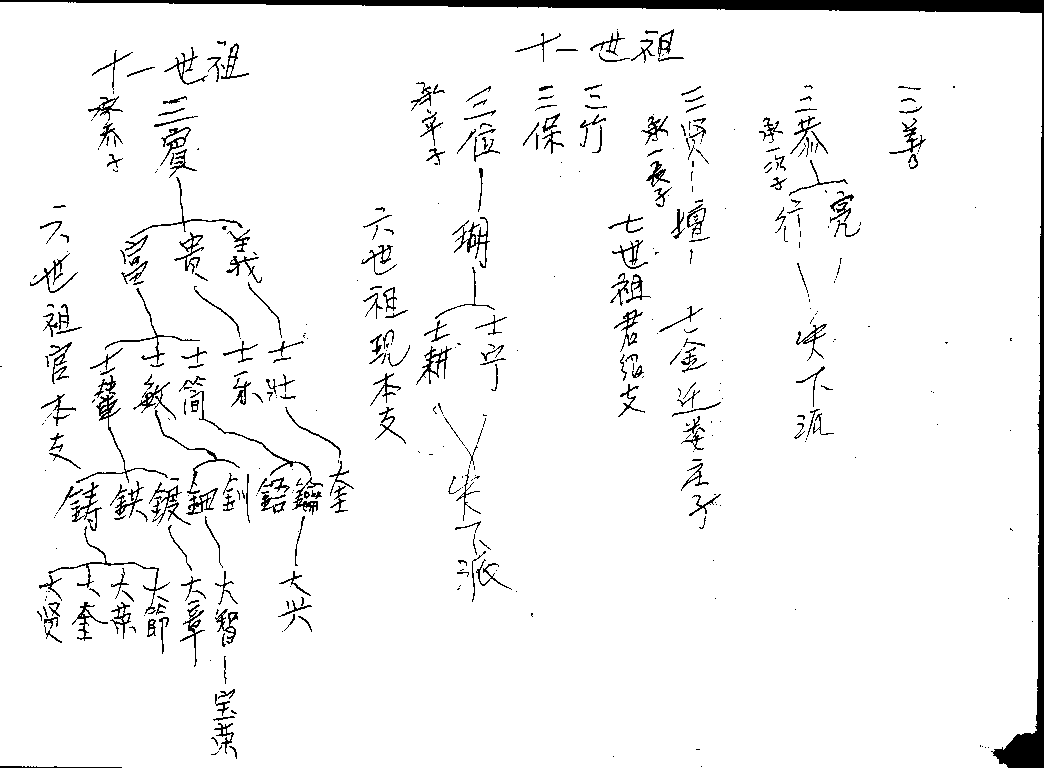 十一世祖
三善
三恭
承一次子
亮
行
失下派
三贤
承一長子
壇
士金迁娄庄子
七世祖君绍支
三竹
三保
三位
承章子
瑚
士宁
士耕
失下派
六世祖現本支
十一世祖
三寳
義
貴
富
士壯
士乐
士簡
士敏
士輦
奎
鑰
鋙
釗
鈿
鍍
鉷
鑄
大兴
大智
大章
大節
大荣
大奎
大贤
宝荣
六世祖官本支